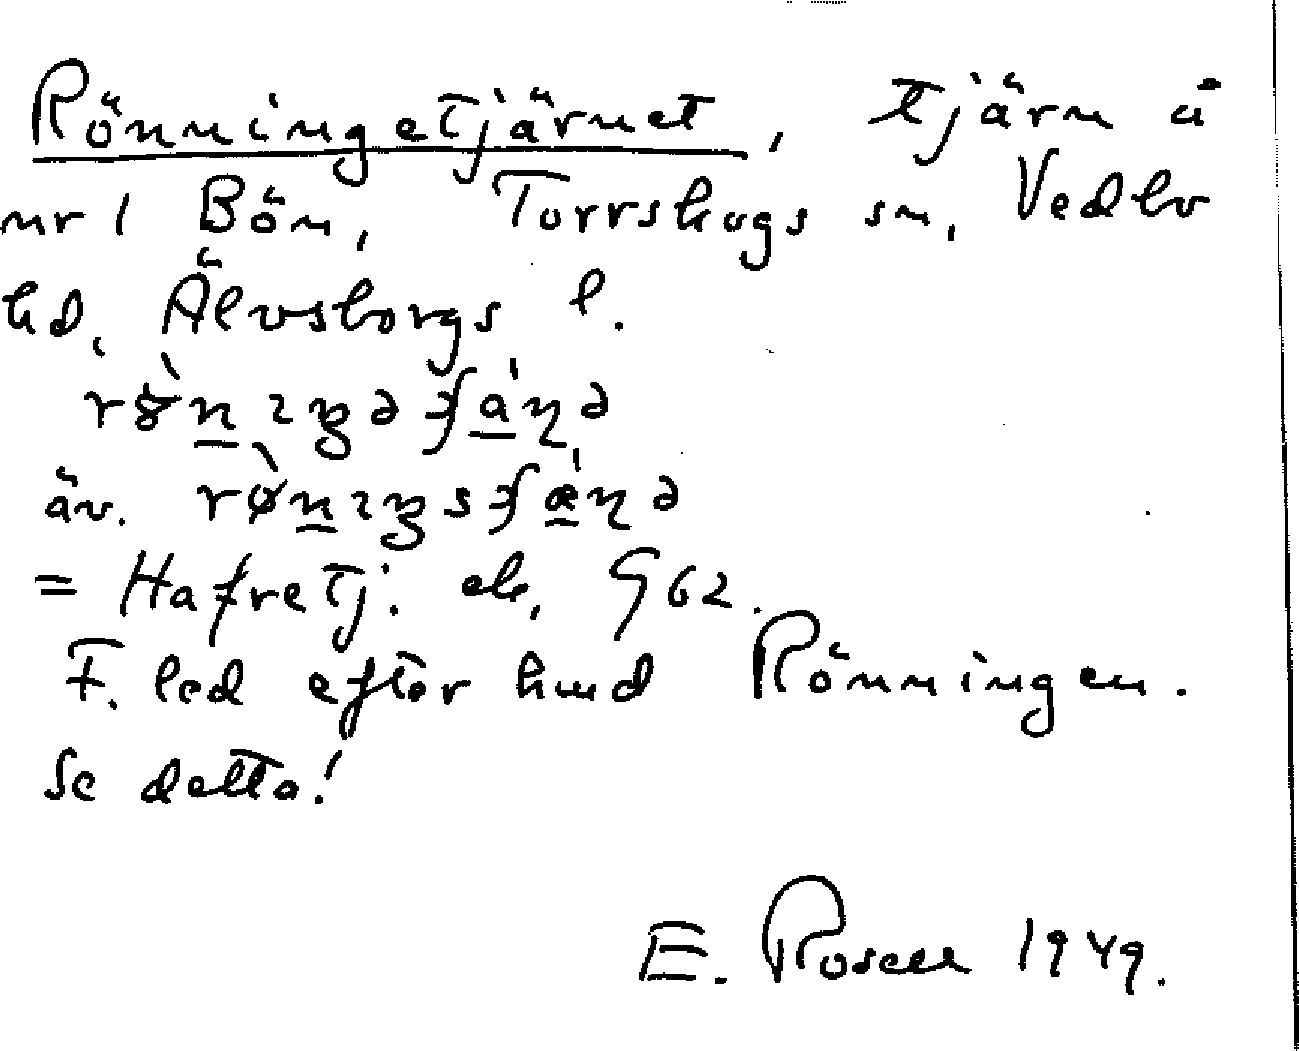 Rönningetjärnet, tjärn å
nr 1 Bön, Torrskogs sn, Vedbo
hd, Älvsborgs l.
äv.
= Hafretj. ek, G 62.
F. led efter hmd Rönningen.
Se detta!
E. Rosell 1949.